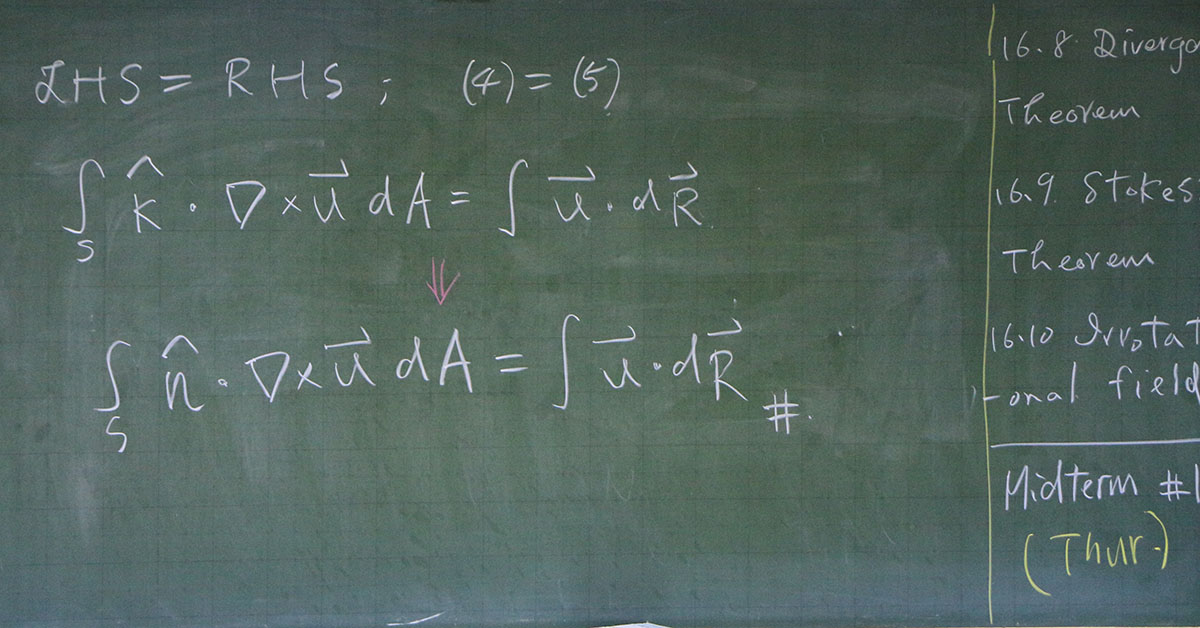 LHS = RHS ; (4) = (5)
∫_S k̂ · ∇ × u⃗ dA = ∫ u⃗ · dR⃗
⇓
∫_S n̂ · ∇ × u⃗ dA = ∫ u⃗ · dR⃗ #.
16.8 Diverge
Theorem
16.9. Stokes
Theorem
16.10 Irrotat
-onal field
Midterm #1
(Thur.)